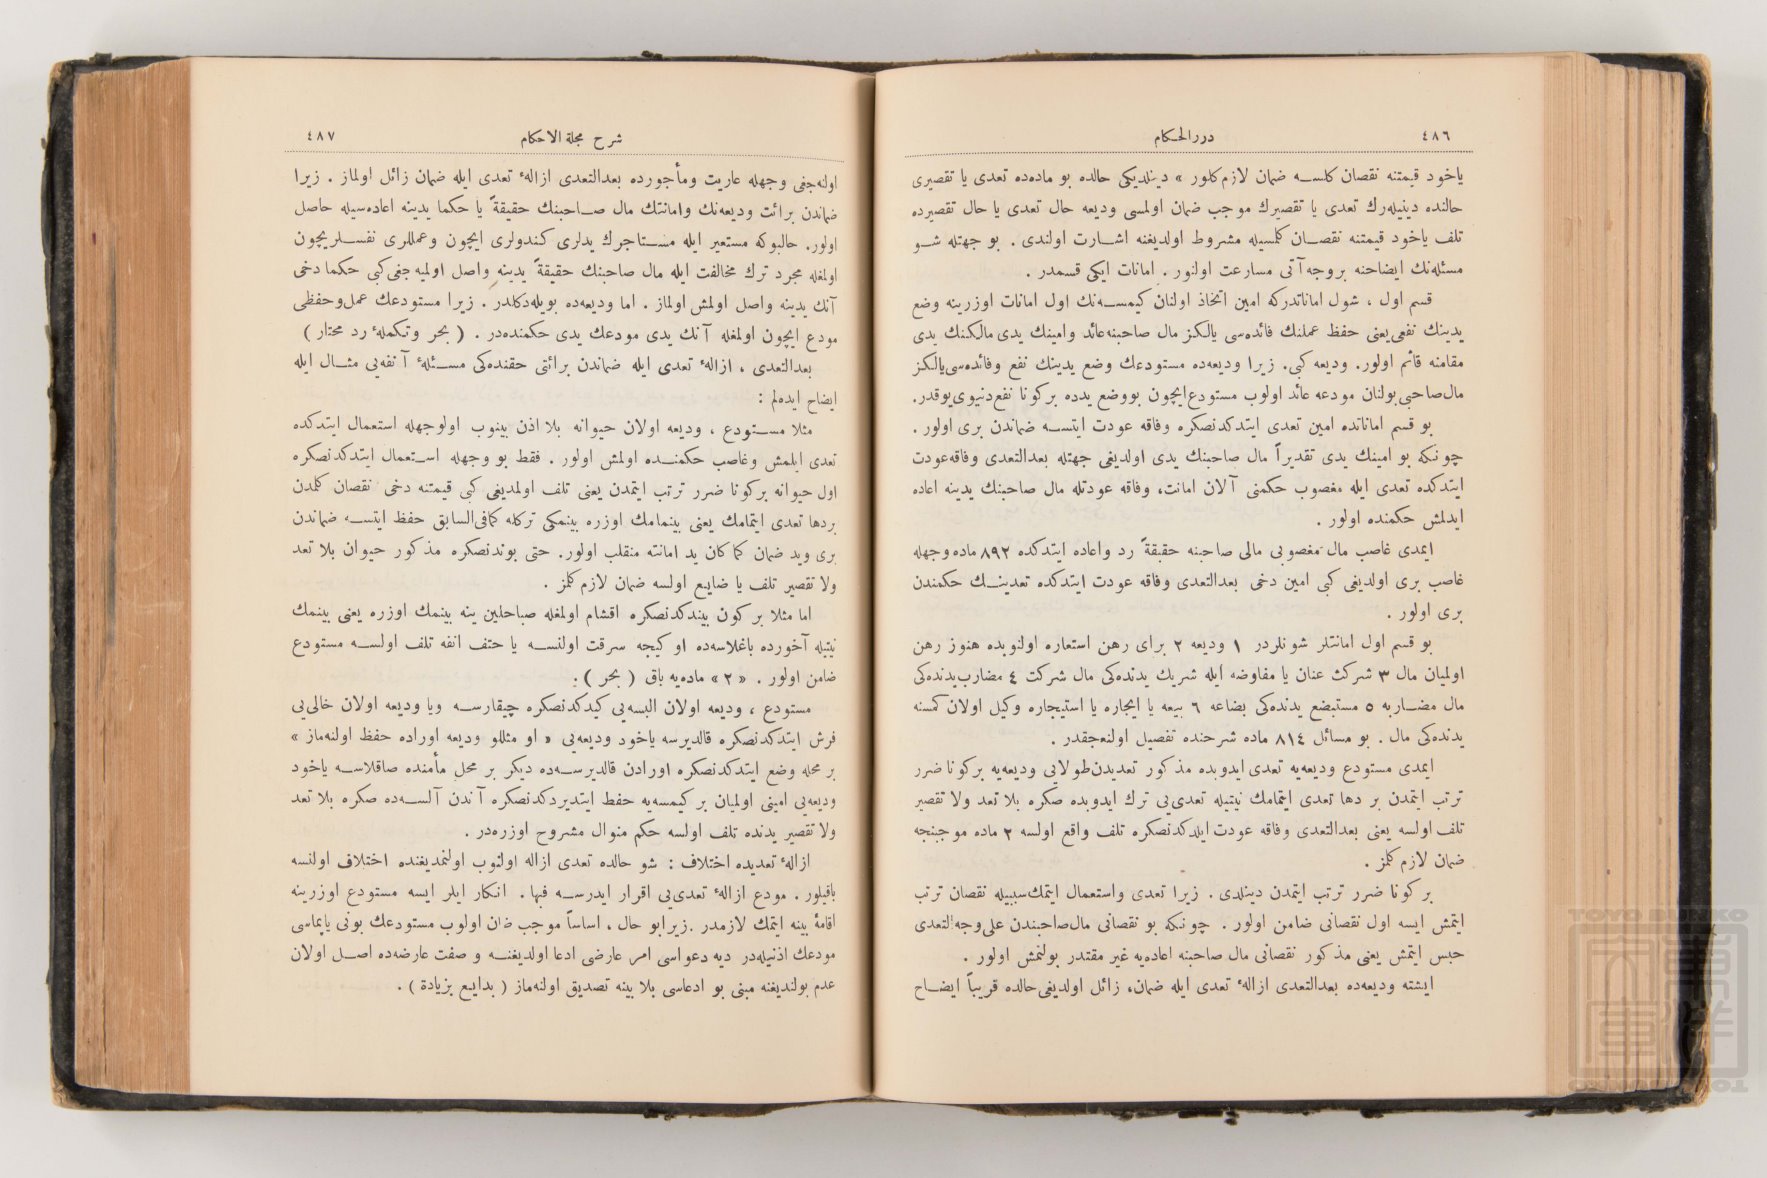 ٤٨٦
دررالحكام
ياخود قيمتنه نقصان كلسه ضمان لازم كلور » دينلديكى حالده بو ماده‌ده تعدى يا تقصيرى
حالنده دينيله‌رك تعدى يا تقصيرك موجب ضمان اولمسى وديعه حال تعدى يا حال تقصيرده
تلف ياخود قيمتنه نقصان كلمسيله مشروط اولديغنه اشارت اولندى . بو جهتله شو
مسئله‌نك ايضاحنه بروجه آتى مسارعت اولنور . امانات ايكى قسمدر .
قسم اول ، شول اماناتدركه امين اتخاذ اولنان كيمسه‌نك اول امانات اوزرينه وضع
يدينك نفعى يعنى حفظ عملنك فائده‌سى يالكز مال صاحبنه عائد وامينك يدى مالكنك يدى
مقامنه قائم اولور. وديعه كبى. زيرا وديعه‌ده مستودعك وضع يدينك نفع وفائده‌سى يالكز
مال صاحبى بولنان مودعه عائد اولوب مستودع ايچون بووضع يدده بركونا نفع دنيوى يوقدر.
بو قسم اماناتده امين تعدى ايتدكدنصكره وفاقه عودت ايتسه ضماندن برى اولور .
چونكه بو امينك يدى تقديراً مال صاحبنك يدى اولديغى جهتله بعدالتعدى وفاقه عودت
ايتدكده تعدى ايله مغصوب حكمنى آلان امانت، وفاقه عودتله مال صاحبنك يدينه اعاده
ايدلمش حكمنده اولور .
ايمدى غاصب مال مغصوبى مالى صاحبنه حقيقةً رد واعاده ايتدكده ٨٩٢ ماده وجهله
غاصب برى اولديغى كبى امين دخى بعدالتعدى وفاقه عودت ايتدكده تعدينك حكمندن
برى اولور .
بو قسم اول امانتلر شونلردر ١ وديعه ٢ براى رهن استعاره اولنوبده هنوز رهن
اولميان مال ٣ شركت عنان يا مفاوضه ايله شريك يدنده‌كى مال شركت ٤ مضارب يدنده‌كى
مال مضاربه ٥ مستبضع يدنده‌كى بضاعه ٦ بيعه يا ايجاره يا استيجاره وكيل اولان كمسنه
يدنده‌كى مال . بو مسائل ٨١٤ ماده شرحنده تفصيل اولنه‌جقدر .
ايمدى مستودع وديعه‌يه تعدى ايدوبده مذكور تعديدن طولايى وديعه‌يه بركونا ضرر
ترتب ايتمدن بر دها تعدى ايتمامك نيتيله تعدى‌يى ترك ايدوبده صكره بلا تعد ولا تقصير
تلف اولسه يعنى بعدالتعدى وفاقه عودت ايلدكدنصكره تلف واقع اولسه ٢ ماده موجبنجه
ضمان لازم كلمز .
بركونا ضرر ترتب ايتمدن دينلدى . زيرا تعدى واستعمال ايتمك سببيله نقصان ترتب
ايتمش ايسه اول نقصانى ضامن اولور . چونكه بو نقصانى مال صاحبندن على وجه التعدى
حبس ايتمش يعنى مذكور نقصانى مال صاحبنه اعاده‌يه غير مقتدر بولنمش اولور .
ايشته وديعه‌ده بعدالتعدى ازالۀ تعدى ايله ضمان، زائل اولديغى حالده قريباً ايضاح
شرح مجلة الاحكام
٤٨٧
اولنه‌جغى وجهله عاريت ومأجورده بعدالتعدى ازالۀ تعدى ايله ضمان زائل اولماز . زيرا
ضماندن برائت وديعه‌نك وامانتك مال صاحبنك حقيقةً يا حكما يدينه اعاده‌سيله حاصل
اولور. حالبوكه مستعير ايله مستاجرك يدلرى كندولرى ايچون وعمللرى نفسلريچون
اولمغله مجرد ترك مخالفت ايله مال صاحبنك حقيقةً يدينه واصل اولميه‌جغى كبى حكما دخى
آنك يدينه واصل اولمش اولماز . اما وديعه‌ده بويله دكلدر . زيرا مستودعك عمل وحفظى
مودع ايچون اولمغله آنك يدى مودعك يدى حكمنده‌در . ( بحر وتكملۀ رد محتار )
بعدالتعدى ، ازالۀ تعدى ايله ضماندن برائتى حقنده‌كى مسئلۀ آنفه‌يى مثال ايله
ايضاح ايده‌لم :
مثلا مستودع ، وديعه اولان حيوانه بلا اذن بينوب اولوجهله استعمال ايتدكده
تعدى ايلمش وغاصب حكمنده اولمش اولور . فقط بو وجهله استعمال ايتدكدنصكره
اول حيوانه بركونا ضرر ترتب ايتمدن يعنى تلف اولمديغى كبى قيمتنه دخى نقصان كلمدن
بردها تعدى ايتمامك يعنى بينمامك اوزره بينمكى تركله كمافى السابق حفظ ايتسه ضماندن
برى ويد ضمان كماكان يد امانته منقلب اولور. حتى بوندنصكره مذكور حيوان بلا تعد
ولا تقصير تلف يا ضايع اولسه ضمان لازم كلمز .
اما مثلا بر كون بيندكدنصكره اقشام اولمغله صباحلين ينه بينمك اوزره يعنى بينمك
نيتيله آخورده باغلاسه‌ده او كيجه سرقت اولنسه يا حتف انفه تلف اولسه مستودع
ضامن اولور . « ٢ » ماده‌يه باق ( بحر ) .
مستودع ، وديعه اولان البسه‌يى كيدكدنصكره چيقارسه ويا وديعه اولان خالى‌يى
فرش ايتدكدنصكره قالديرسه ياخود وديعه‌يى « او مثللو وديعه اوراده حفظ اولنه‌ماز »
بر محله وضع ايتدكدنصكره اورادن قالديرسه‌ده ديكر بر محل مأمنده صاقلاسه ياخود
وديعه‌يى امينى اولميان بر كيمسه‌يه حفظ ايتديردكدنصكره آندن آلسه‌ده صكره بلا تعد
ولا تقصير يدنده تلف اولسه حكم منوال مشروح اوزره‌در .
ازالۀ تعديده اختلاف : شو حالده تعدى ازاله اولنوب اولنمديغنده اختلاف اولنسه
باقيلور . مودع ازالۀ تعدى‌يى اقرار ايدرسه فبها . انكار ايلر ايسه مستودع اوزرينه
اقامۀ بينه ايتمك لازمدر .زيرابو حال ، اساساً موجب ضمان اولوب مستودعك بونى ياپماسى
مودعك اذنيله‌در ديه دعواسى امر عارضى ادعا اولديغنه و صفت عارضه‌ده اصل اولان
عدم بولنديغنه مبنى بو ادعاسى بلا بينه تصديق اولنه‌ماز ( بدايع بزيادة ) .
TOYO BUNKO